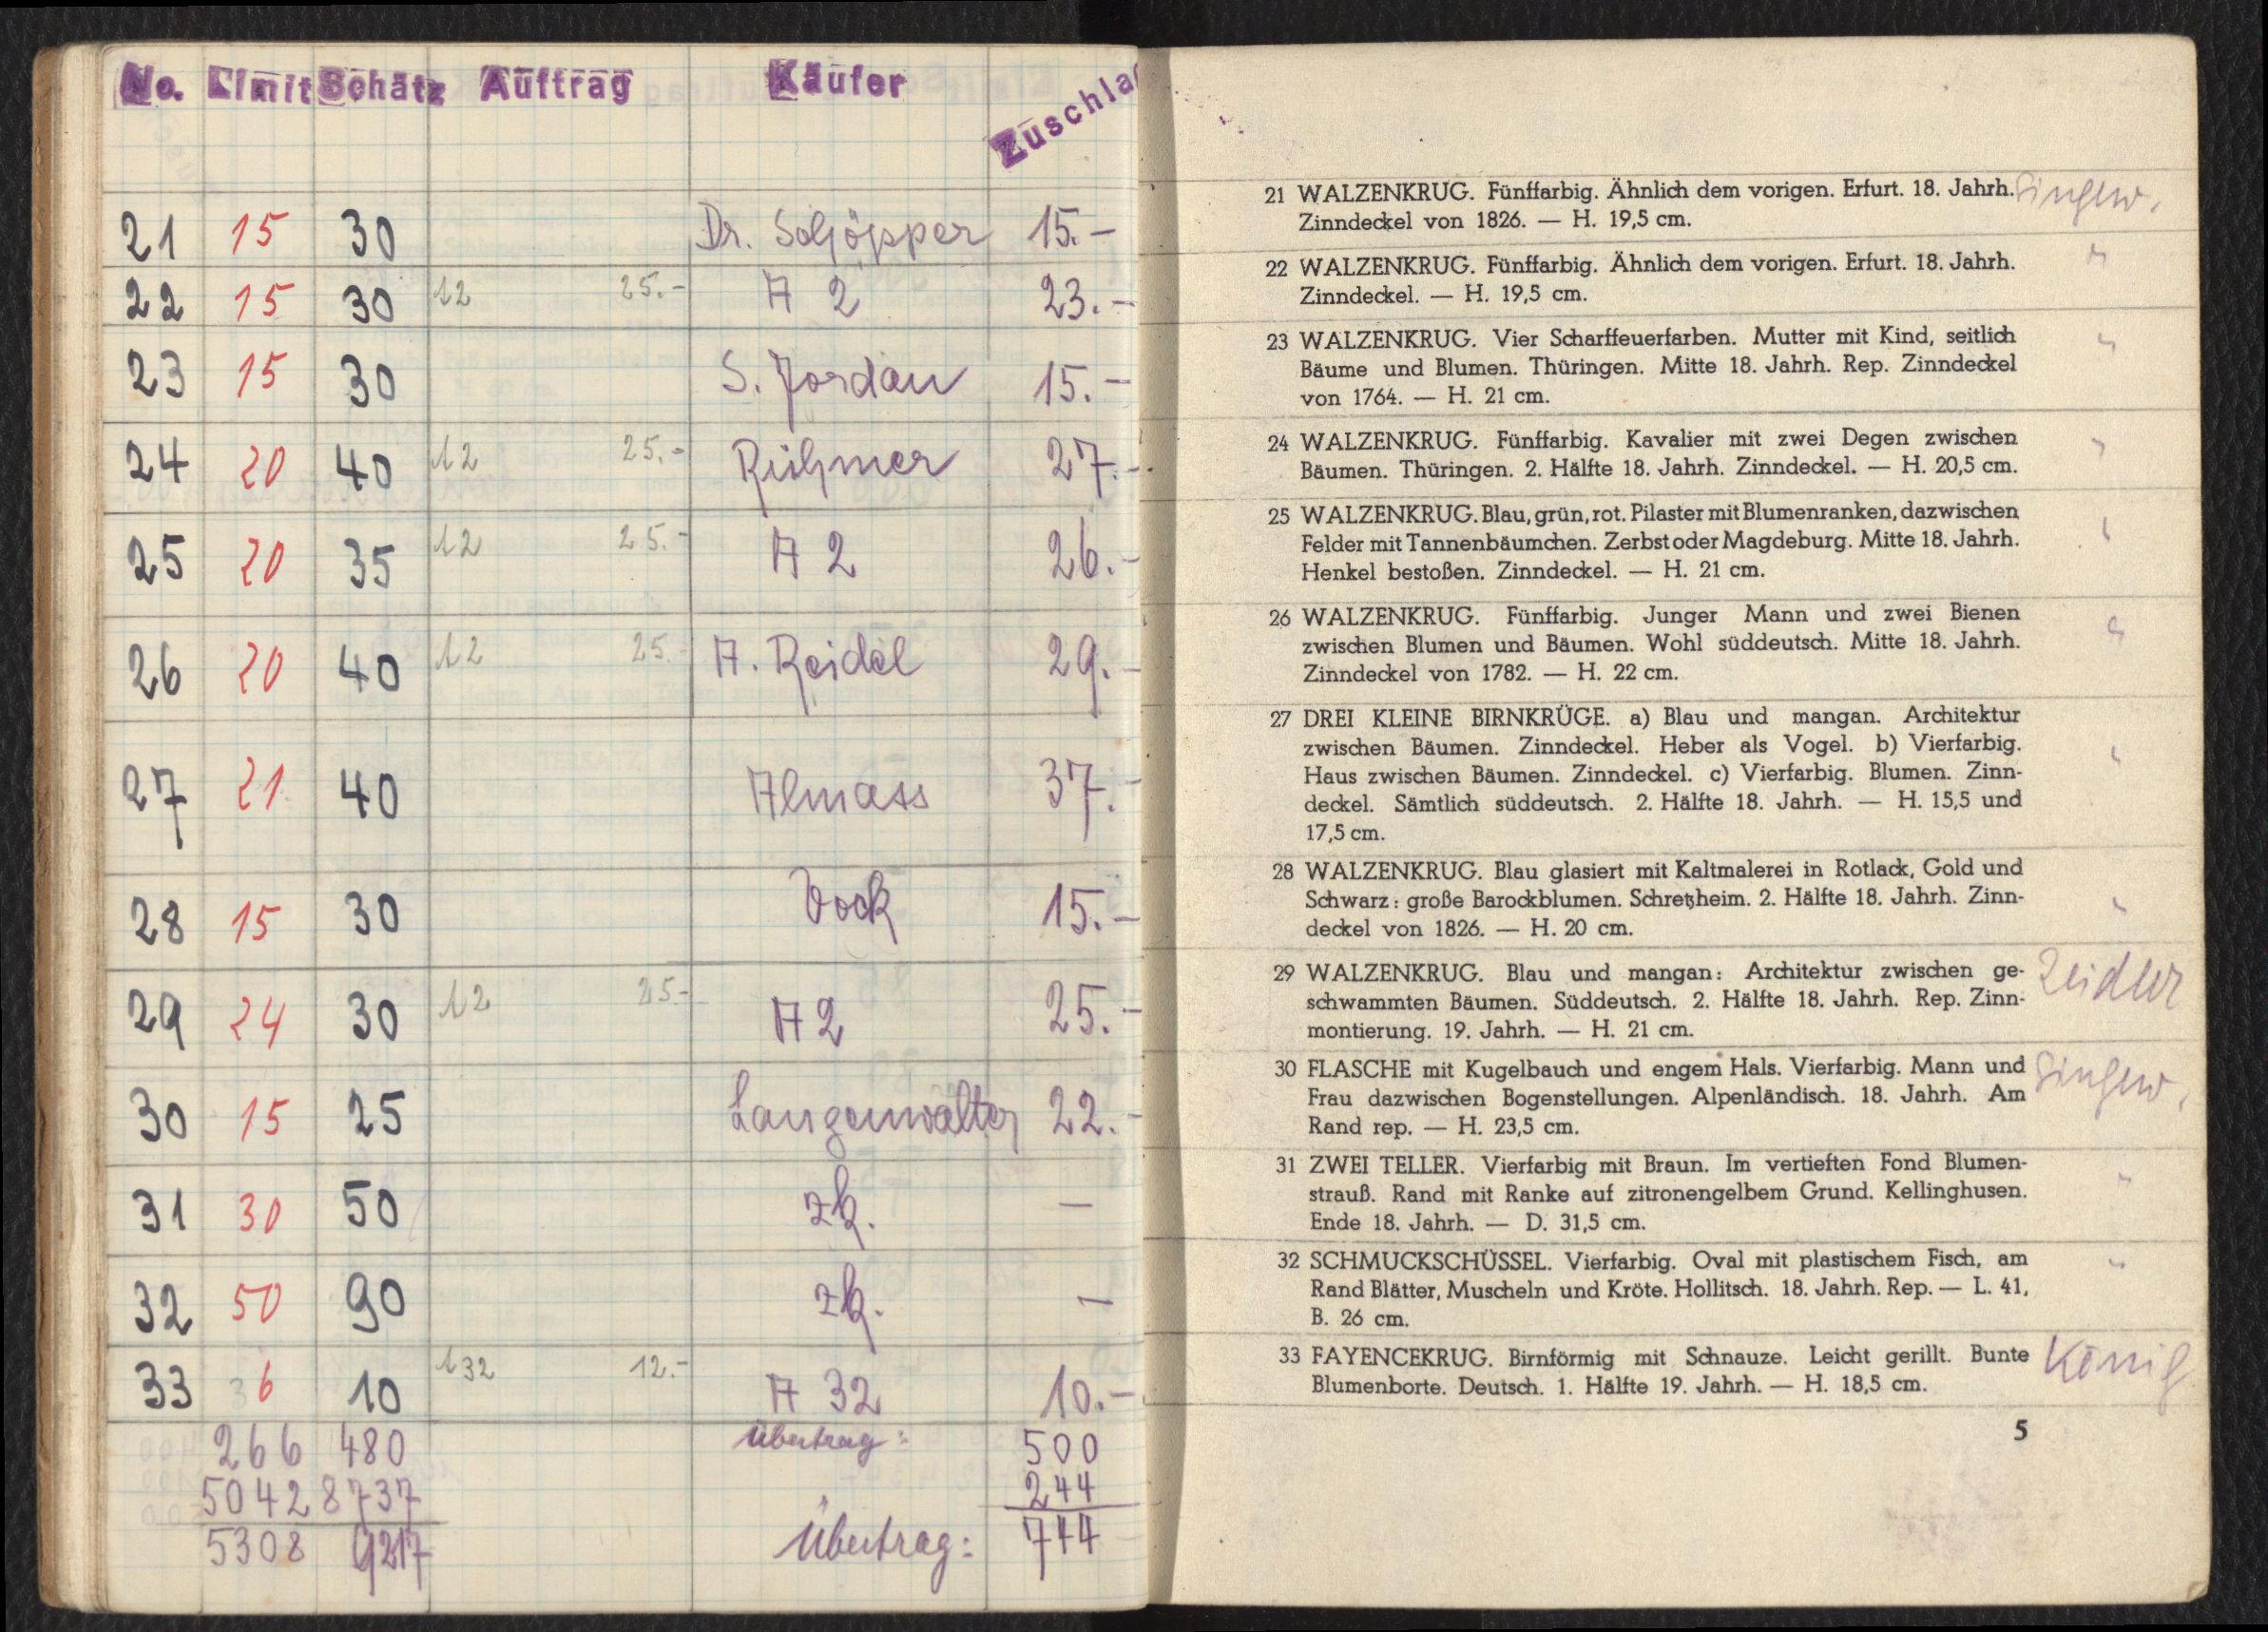 No. Limit Schätz Auftrag Käufer Zuschlag
21 15 30 Dr. Schöpper 15.-
22 15 30 A2 25.- A 2 23.-
23 15 30 S. Jordan 15.-
24 20 40 A2 25.- Rühmer 27.-
25 20 35 A2 25.- A 2 26.-
26 20 40 A2 25.- A. Reidel 29.-
27 21 40 Almass 37.-
28 15 30 Vock 15.-
29 24 30 A2 25.- A 2 25.-
30 15 25 Langenwalter 22.-
31 30 50 zk. —
32 50 90 zk. —
33 6 10 A32 12.- A 32 10.-
266 480 Übertrag: 500
5042 8737 244
5308 9217 Übertrag: 744
21 WALZENKRUG. Fünffarbig. Ähnlich dem vorigen. Erfurt. 18. Jahrh.
Zinndeckel von 1826. — H. 19,5 cm.
22 WALZENKRUG. Fünffarbig. Ähnlich dem vorigen. Erfurt. 18. Jahrh. "
Zinndeckel. — H. 19,5 cm.
23 WALZENKRUG. Vier Scharffeuerfarben. Mutter mit Kind, seitlich "
Bäume und Blumen. Thüringen. Mitte 18. Jahrh. Rep. Zinndeckel
von 1764. — H. 21 cm.
24 WALZENKRUG. Fünffarbig. Kavalier mit zwei Degen zwischen "
Bäumen. Thüringen. 2. Hälfte 18. Jahrh. Zinndeckel. — H. 20,5 cm.
25 WALZENKRUG. Blau, grün, rot. Pilaster mit Blumenranken, dazwischen "
Felder mit Tannenbäumchen. Zerbst oder Magdeburg. Mitte 18. Jahrh.
Henkel bestoßen. Zinndeckel. — H. 21 cm.
26 WALZENKRUG. Fünffarbig. Junger Mann und zwei Bienen "
zwischen Blumen und Bäumen. Wohl süddeutsch. Mitte 18. Jahrh.
Zinndeckel von 1782. — H. 22 cm.
27 DREI KLEINE BIRNKRÜGE. a) Blau und mangan. Architektur
zwischen Bäumen. Zinndeckel. Heber als Vogel. b) Vierfarbig. "
Haus zwischen Bäumen. Zinndeckel. c) Vierfarbig. Blumen. Zinn-
deckel. Sämtlich süddeutsch. 2. Hälfte 18. Jahrh. — H. 15,5 und
17,5 cm.
28 WALZENKRUG. Blau glasiert mit Kaltmalerei in Rotlack, Gold und
Schwarz: große Barockblumen. Schretzheim. 2. Hälfte 18. Jahrh. Zinn- "
deckel von 1826. — H. 20 cm.
29 WALZENKRUG. Blau und mangan: Architektur zwischen ge- Zeidler
schwammten Bäumen. Süddeutsch. 2. Hälfte 18. Jahrh. Rep. Zinn-
montierung. 19. Jahrh. — H. 21 cm.
30 FLASCHE mit Kugelbauch und engem Hals. Vierfarbig. Mann und
Frau dazwischen Bogenstellungen. Alpenländisch. 18. Jahrh. Am
Rand rep. — H. 23,5 cm.
31 ZWEI TELLER. Vierfarbig mit Braun. Im vertieften Fond Blumen- "
strauß. Rand mit Ranke auf zitronengelbem Grund. Kellinghusen.
Ende 18. Jahrh. — D. 31,5 cm.
32 SCHMUCKSCHÜSSEL. Vierfarbig. Oval mit plastischem Fisch, am "
Rand Blätter, Muscheln und Kröte. Hollitsch. 18. Jahrh. Rep. — L. 41,
B. 26 cm.
33 FAYENCEKRUG. Birnförmig mit Schnauze. Leicht gerillt. Bunte König
Blumenborte. Deutsch. 1. Hälfte 19. Jahrh. — H. 18,5 cm.
5